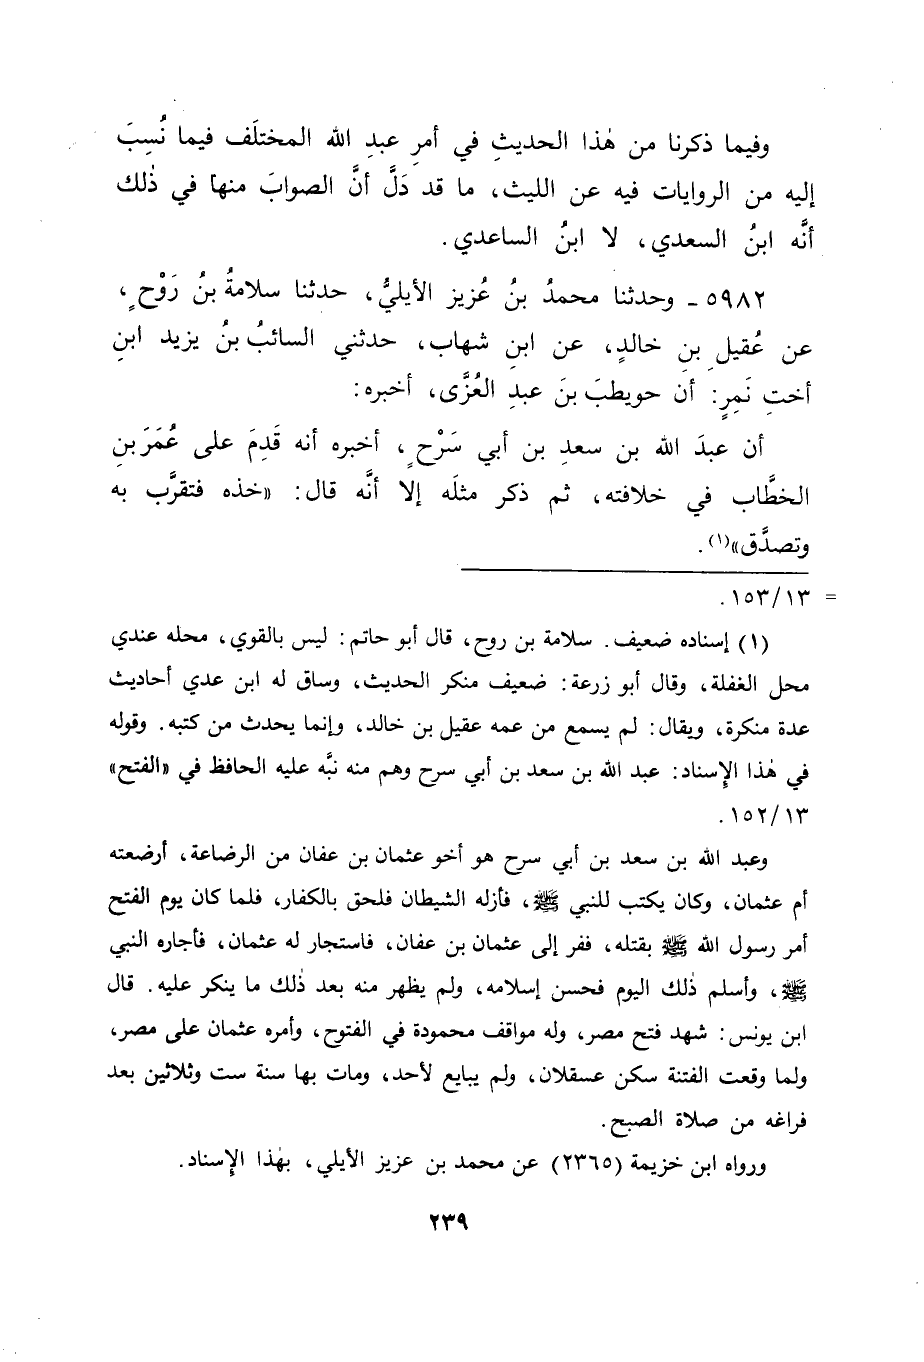 وفيما ذكرنا من هٰذا الحديثِ في أمرِ عبدِ الله المختلَف فيما نُسِبَ
إليه من الروايات فيه عن الليث، ما قد دَلَّ أنَّ الصوابَ منها في ذٰلك
أنَّه ابنُ السعدي، لا ابنُ الساعدي.
٥٩٨٢ ـ وحدثنا محمدُ بنُ عُزيز الأيليُّ، حدثنا سلامةُ بنُ رَوْحٍ،
عن عُقيلِ بنِ خالدٍ، عن ابنِ شهاب، حدثني السائبُ بنُ يزيد ابنِ
أختِ نَمِرٍ: أن حويطبَ بنَ عبدِ العُزَّى، أخبره:
أن عبدَ الله بن سعدِ بن أبي سَرْحٍ، أخبره أنه قَدِمَ على عُمَرَ بنِ
الخطَّاب في خلافته، ثم ذكر مثلَه إلا أنَّه قال: «خذه فتقرَّب به
وتصدَّق»(١).
= ١٥٣/١٣.
(١) إسناده ضعيف. سلامة بن روح، قال أبو حاتم: ليس بالقوي، محله عندي
محل الغفلة، وقال أبو زرعة: ضعيف منكر الحديث، وساق له ابن عدي أحاديث
عدة منكرة، ويقال: لم يسمع من عمه عقيل بن خالد، وإنما يحدث من كتبه. وقوله
في هٰذا الإسناد: عبد الله بن سعد بن أبي سرح وهم منه نبَّه عليه الحافظ في «الفتح»
١٥٢/١٣.
وعبد الله بن سعد بن أبي سرح هو أخو عثمان بن عفان من الرضاعة، أرضعته
أم عثمان، وكان يكتب للنبي ﷺ، فأزله الشيطان فلحق بالكفار، فلما كان يوم الفتح
أمر رسول الله ﷺ بقتله، ففر إلى عثمان بن عفان، فاستجار له عثمان، فأجاره النبي
ﷺ، وأسلم ذٰلك اليوم فحسن إسلامه، ولم يظهر منه بعد ذٰلك ما ينكر عليه. قال
ابن يونس: شهد فتح مصر، وله مواقف محمودة في الفتوح، وأمره عثمان على مصر،
ولما وقعت الفتنة سكن عسقلان، ولم يبايع لأحد، ومات بها سنة ست وثلاثين بعد
فراغه من صلاة الصبح.
ورواه ابن خزيمة (٢٣٦٥) عن محمد بن عزيز الأيلي، بهٰذا الإسناد.
٢٣٩